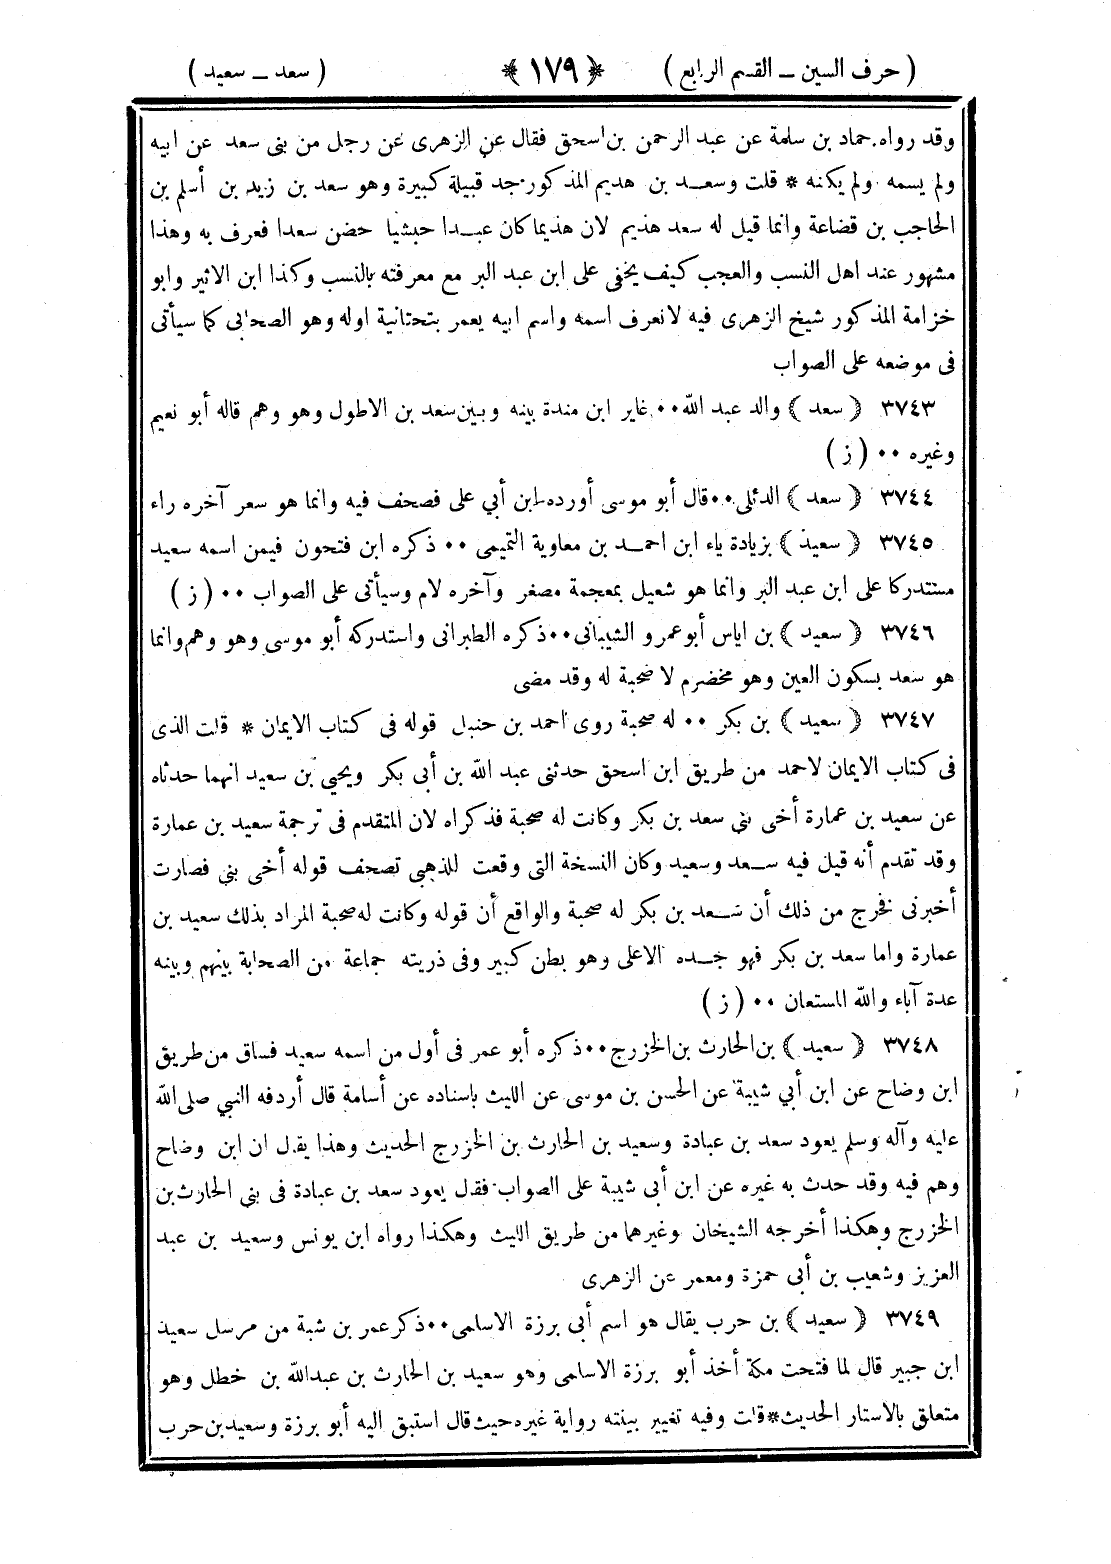 ( حرف السين ــ القسم الرابع ) ﴿ ١٧٩ ﴾ ( سعد ــ سعيد )
وقد رواه حماد بن سلمة عن عبد الرحمن بن اسحق فقال عن الزهرى عن رجل من بنى سعد عن ابيه
ولم يسمه ولم يكنه * قلت وسعــد بن هديم المذكور جد قبيلة كبيرة وهو سعد بن زيد بن أسلم بن
الحاجب بن قضاعة وانما قيل له سعد هذيم لان هذيما كان عبــدا حبشيا حضن سعدا فعرف به وهذا
مشهور عند اهل النسب والعجب كيف يخفى على ابن عبد البر مع معرفته بالنسب وكذا ابن الاثير وابو
خزامة المذكور شيخ الزهرى فيه لانعرف اسمه واسم ابيه يعمر بتحتانية اوله وهو الصحابى كما سيأتى
فى موضعه على الصواب
٣٧٤٣ ﴿ سعد ﴾ والد عبد الله ٠٠ غاير ابن مندة بينه وبين سعد بن الاطول وهو وهم قاله أبو نعيم
وغيره ٠٠ ( ز )
٣٧٤٤ ﴿ سعد ﴾ الدئلى ٠٠ قال أبو موسى أورده ابن أبي على فصحف فيه وانما هو سعر آخره راء
٣٧٤٥ ﴿ سعيد ﴾ بزيادة ياء ابن احمــد بن معاوية التميمى ٠٠ ذكره ابن فتحون فيمن اسمه سعيد
مستدركا على ابن عبد البر وانما هو شعيل بمعجمة مصغر وآخره لام وسيأتى على الصواب ٠٠ ( ز )
٣٧٤٦ ﴿ سعيد ﴾ بن اياس أبو عمرو الشيبانى ٠٠ ذكره الطبرانى واستدركه أبو موسى وهو وهم وانما
هو سعد بسكون العين وهو مخضرم لا صحبة له وقد مضى
٣٧٤٧ ﴿ سعيد ﴾ بن بكر ٠٠ له صحبة روى احمد بن حنبل قوله فى كتاب الايمان * قلت الذى
فى كتاب الايمان لاحمد من طريق ابن اسحق حدثنى عبد الله بن أبى بكر ويحيى بن سعيد انهما حدثاه
عن سعيد بن عمارة أخى بني سعد بن بكر وكانت له صحبة فذكراه لان المتقدم فى ترجمة سعيد بن عمارة
وقد تقدم أنه قيل فيه ســعد وسعيد وكان النسخة التى وقعت للذهبى تصحف قوله أخى بني فصارت
أخبرنى فخرج من ذلك أن ســعد بن بكر له صحبة والواقع أن قوله وكانت له صحبة المراد بذلك سعيد بن
عمارة واما سعد بن بكر فهو جــده الاعلى وهو بطن كبير وفى ذريته جماعة من الصحابة بينهم وبينه
عدة آباء والله المستعان ٠٠ ( ز )
٣٧٤٨ ﴿ سعيد ﴾ بن الحارث بن الخزرج ٠٠ ذكره أبو عمر فى أول من اسمه سعيد فساق من طريق
ابن وضاح عن ابن أبي شيبة عن الحسن بن موسى عن الليث باسناده عن أسامة قال أردفه النبي صلى الله
عليه وآله وسلم يعود سعد بن عبادة وسعيد بن الحارث بن الخزرج الحديث وهذا يقال ان ابن وضاح
وهم فيه وقد حدث به غيره عن ابن أبى شيبة على الصواب فقال يعود سعد بن عبادة فى بني الحارث بن
الخزرج وهكذا أخرجه الشيخان وغيرهما من طريق الليث وهكذا رواه ابن يونس وسعيد بن عبد
العزيز وشعيب بن أبى حمزة ومعمر عن الزهرى
٣٧٤٩ ﴿ سعيد ﴾ بن حرب يقال هو اسم أبى برزة الاسلمى ٠٠ ذكر عمر بن شبة من مرسل سعيد
ابن جبير قال لما فتحت مكة أخذ أبو برزة الاسلمى وهو سعيد بن الحارث بن عبد الله بن خطل وهو
متعلق بالاستار الحديث * قلت وفيه تغيير بينته رواية غيره حيث قال استبق اليه أبو برزة وسعيد بن حرب